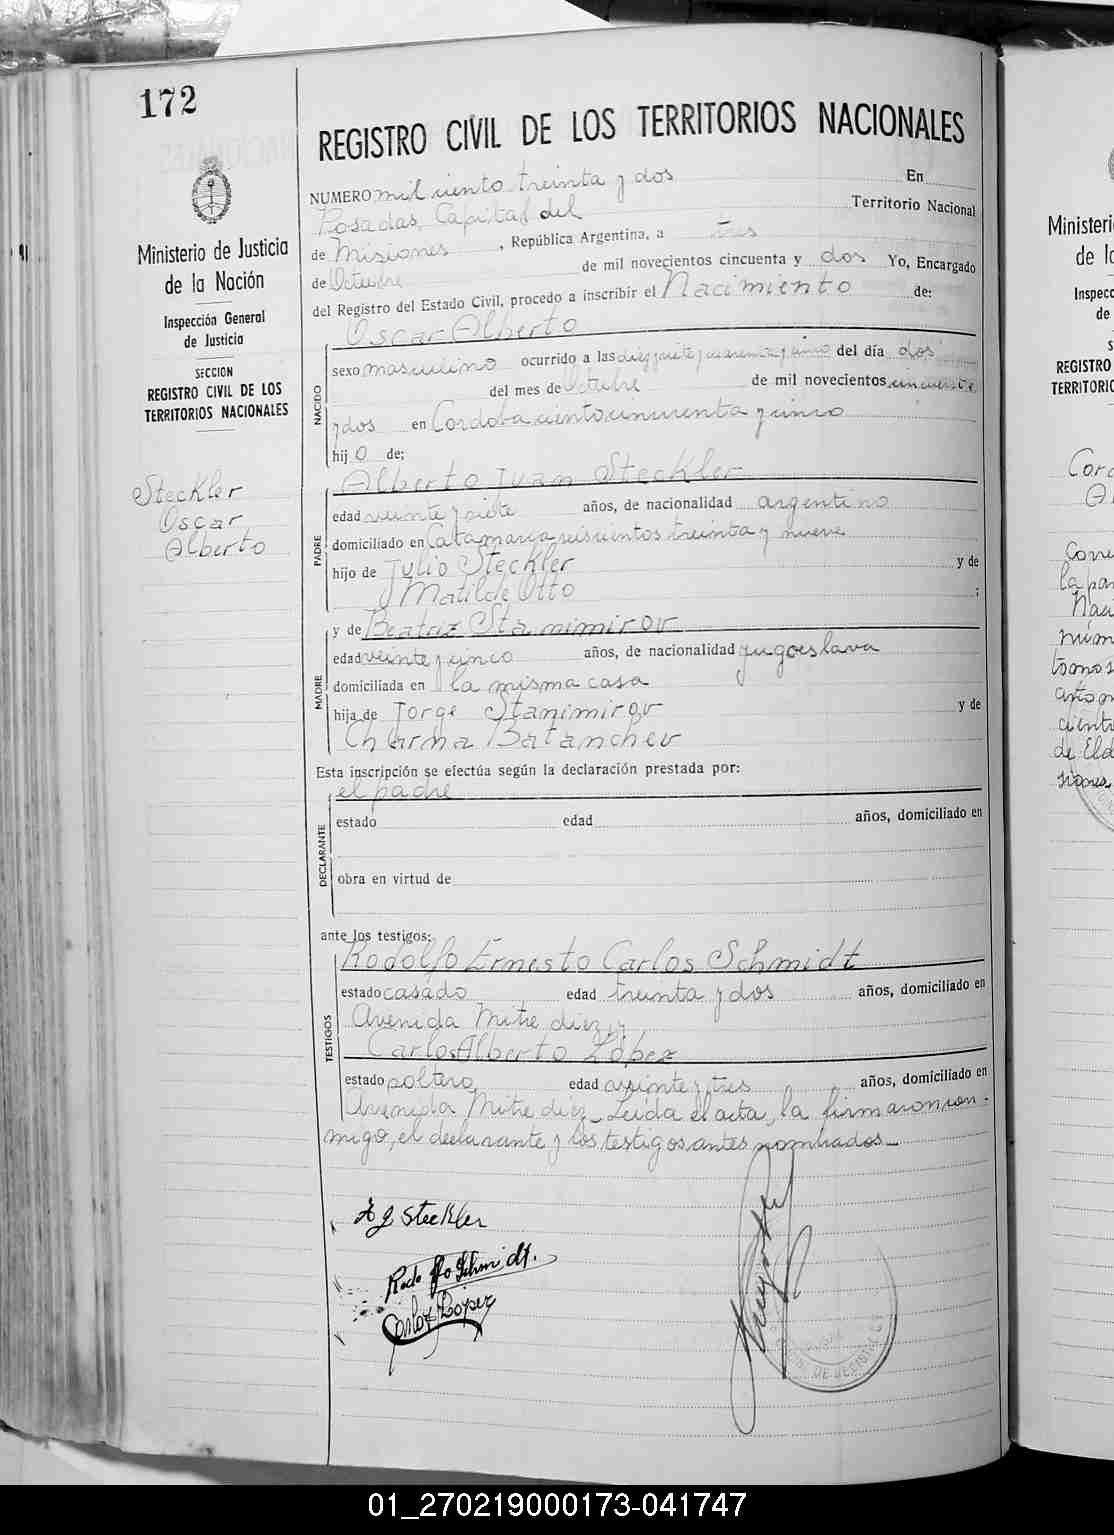 172
REGISTRO CIVIL DE LOS TERRITORIOS NACIONALES
Ministerio de Justicia
de la Nación
Inspección General
de Justicia
SECCION
REGISTRO CIVIL DE LOS
TERRITORIOS NACIONALES
Steckler
Oscar
Alberto
NUMERO mil ciento treinta y dos En
Posadas, Capital del Territorio Nacional
de Misiones, República Argentina, a tres
de Octubre de mil novecientos cincuenta y dos Yo, Encargado
del Registro del Estado Civil, procedo a inscribir el Nacimiento de:
NACIDO
Oscar Alberto
sexo masculino ocurrido a las diez y siete y cuarenta y cinco del día dos
del mes de Octubre de mil novecientos cincuenta
y dos en Cordoba ciento cincuenta y cinco
hijo de:
PADRE
Alberto Juan Steckler
edad veinte y siete años, de nacionalidad argentino
domiciliado en Catamarca seiscientos treinta y nueve
hijo de Julio Steckler y de
Matilde Otto ;
y de Beatriz Stanimirov
MADRE
edad veinte y cinco años, de nacionalidad yugoeslava
domiciliada en la misma casa
hija de Jorge Stanimirov y de
Charna Batanchev
Esta inscripción se efectúa según la declaración prestada por:
el padre
DECLARANTE
estado edad años, domiciliado en
obra en virtud de
ante los testigos:
TESTIGOS
Rodolfo Ernesto Carlos Schmidt
estado casado edad treinta y dos años, domiciliado en
Avenida Mitre diez y
Carlos Alberto López
estado soltero edad veinte y tres años, domiciliado en
Avenida Mitre diez. Leida el acta, la firmaron con-
migo, el declarante y los testigos antes nombrados.
A J Steckler
Rodolfo Schmidt.
Carlos López
DE JUSTICIA
Ministeri
de la
Inspecc
de
S
REGISTRO
TERRITORIO
Corre
la par
Naci
núm
tomo s
ciento
de Eld
siones.
01_270219000173-041747